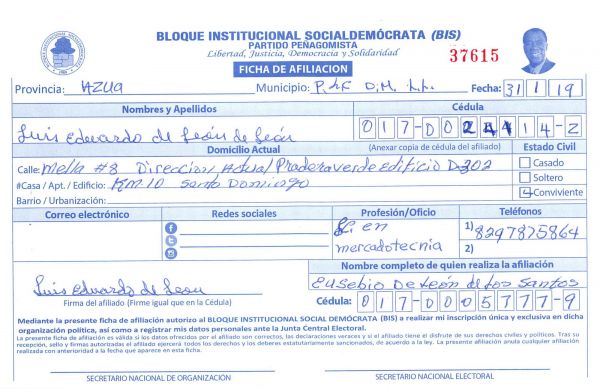 BLOQUE INSTITUCIONAL SOCIALDEMÓCRATA (BIS)
PARTIDO PEÑAGOMISTA
Libertad, Justicia, Democracia y Solidaridad
37615
FICHA DE AFILIACION
Provincia: AZUA Municipio: D.M. Fecha: 31 1 19
Nombres y Apellidos Cédula
Luis Eduardo de León de León 017-00 14-2
Domicilio Actual (Anexar copia de cédula del afiliado) Estado Civil
Calle: Mella #8 Direccion Actual Pradera verde Edificio D-302 Casado
#Casa / Apt. / Edificio: KM 10 Santo Domingo Soltero
Barrio / Urbanización: Conviviente
Correo electrónico Redes sociales Profesión/Oficio Teléfonos
en mercadotecnia
1) 8297875864
2)
Nombre completo de quien realiza la afiliación
Luis Eduardo de Leon Eusebio De León de los Santos
Firma del afiliado (Firme igual que en la Cédula) Cédula: 017-0005777-9
Mediante la presente ficha de afiliación autorizo al BLOQUE INSTITUCIONAL SOCIAL DEMÓCRATA (BIS) a realizar mi inscripción única y exclusiva en dicha
organización política, así como a registrar mis datos personales ante la Junta Central Electoral.
La presente ficha de afiliación es válida si los datos ofrecidos por el afiliado son correctos, las declaraciones veraces y si el afiliado tiene el disfrute de sus derechos civiles y políticos. Tras su
recepción, sello y firmas autorizadas el afiliado ejercerá todos los derechos y los deberes estatutariamente sancionados, de acuerdo a la ley. La presente afiliación anula cualquier afiliación
realizada con anterioridad a la fecha que aparece en esta ficha.
SECRETARIO NACIONAL DE ORGANIZACIÓN SECRETARIO NACIONAL ELECTORAL